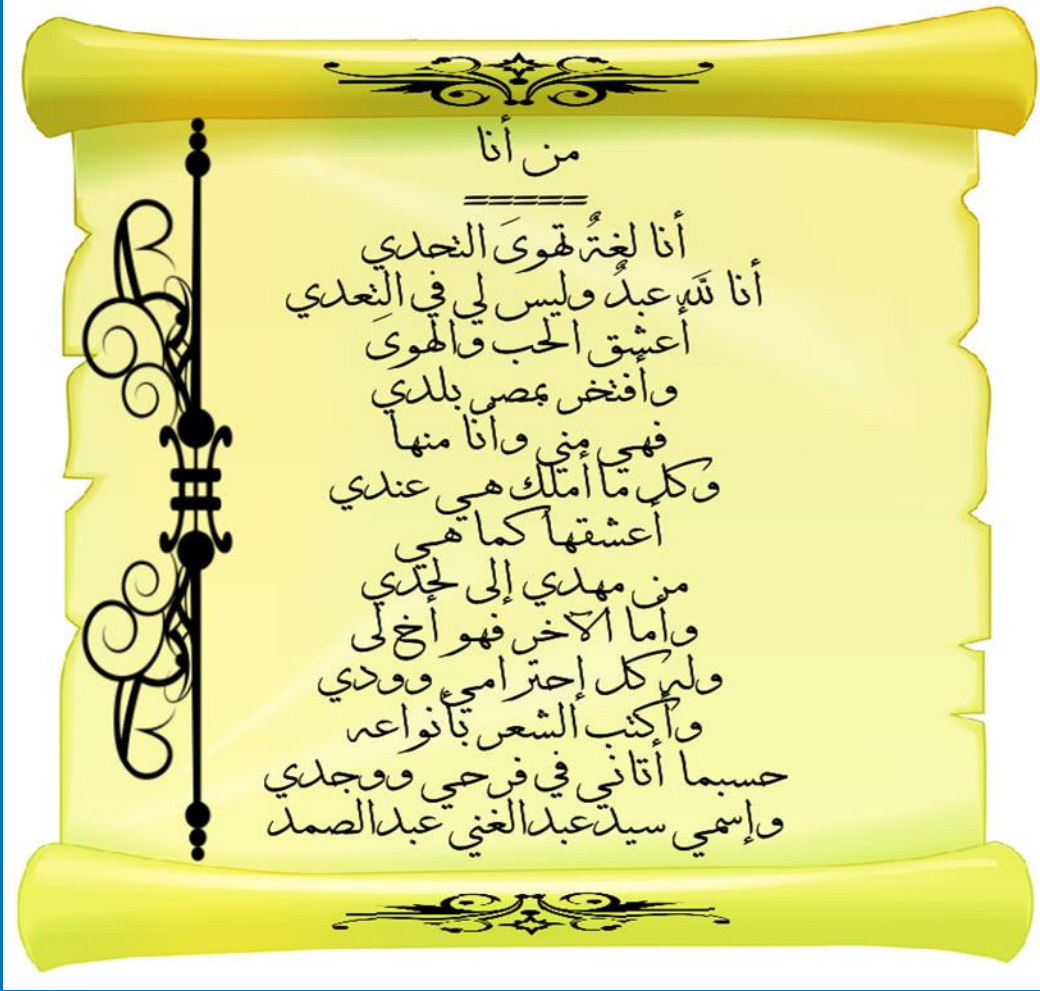 من أنا
=====
أنا لغةٌ تهوىَ التحدي
أنا لله عبدٌ وليس لي في التعدي
أعشق الحب والهوىَ
وأفتخر بمصر بلدي
فهي مني وأنا منها
وكل ما أملك هي عندي
أعشقها كما هي
من مهدي إلى لحدي
وأما الآخر فهو أخ لى
وله كل إحترامي وودي
وأكتب الشعر بأنواعه
حسبما أتاني في فرحي ووجدي
وإسمي سيد عبدالغني عبدالصمد